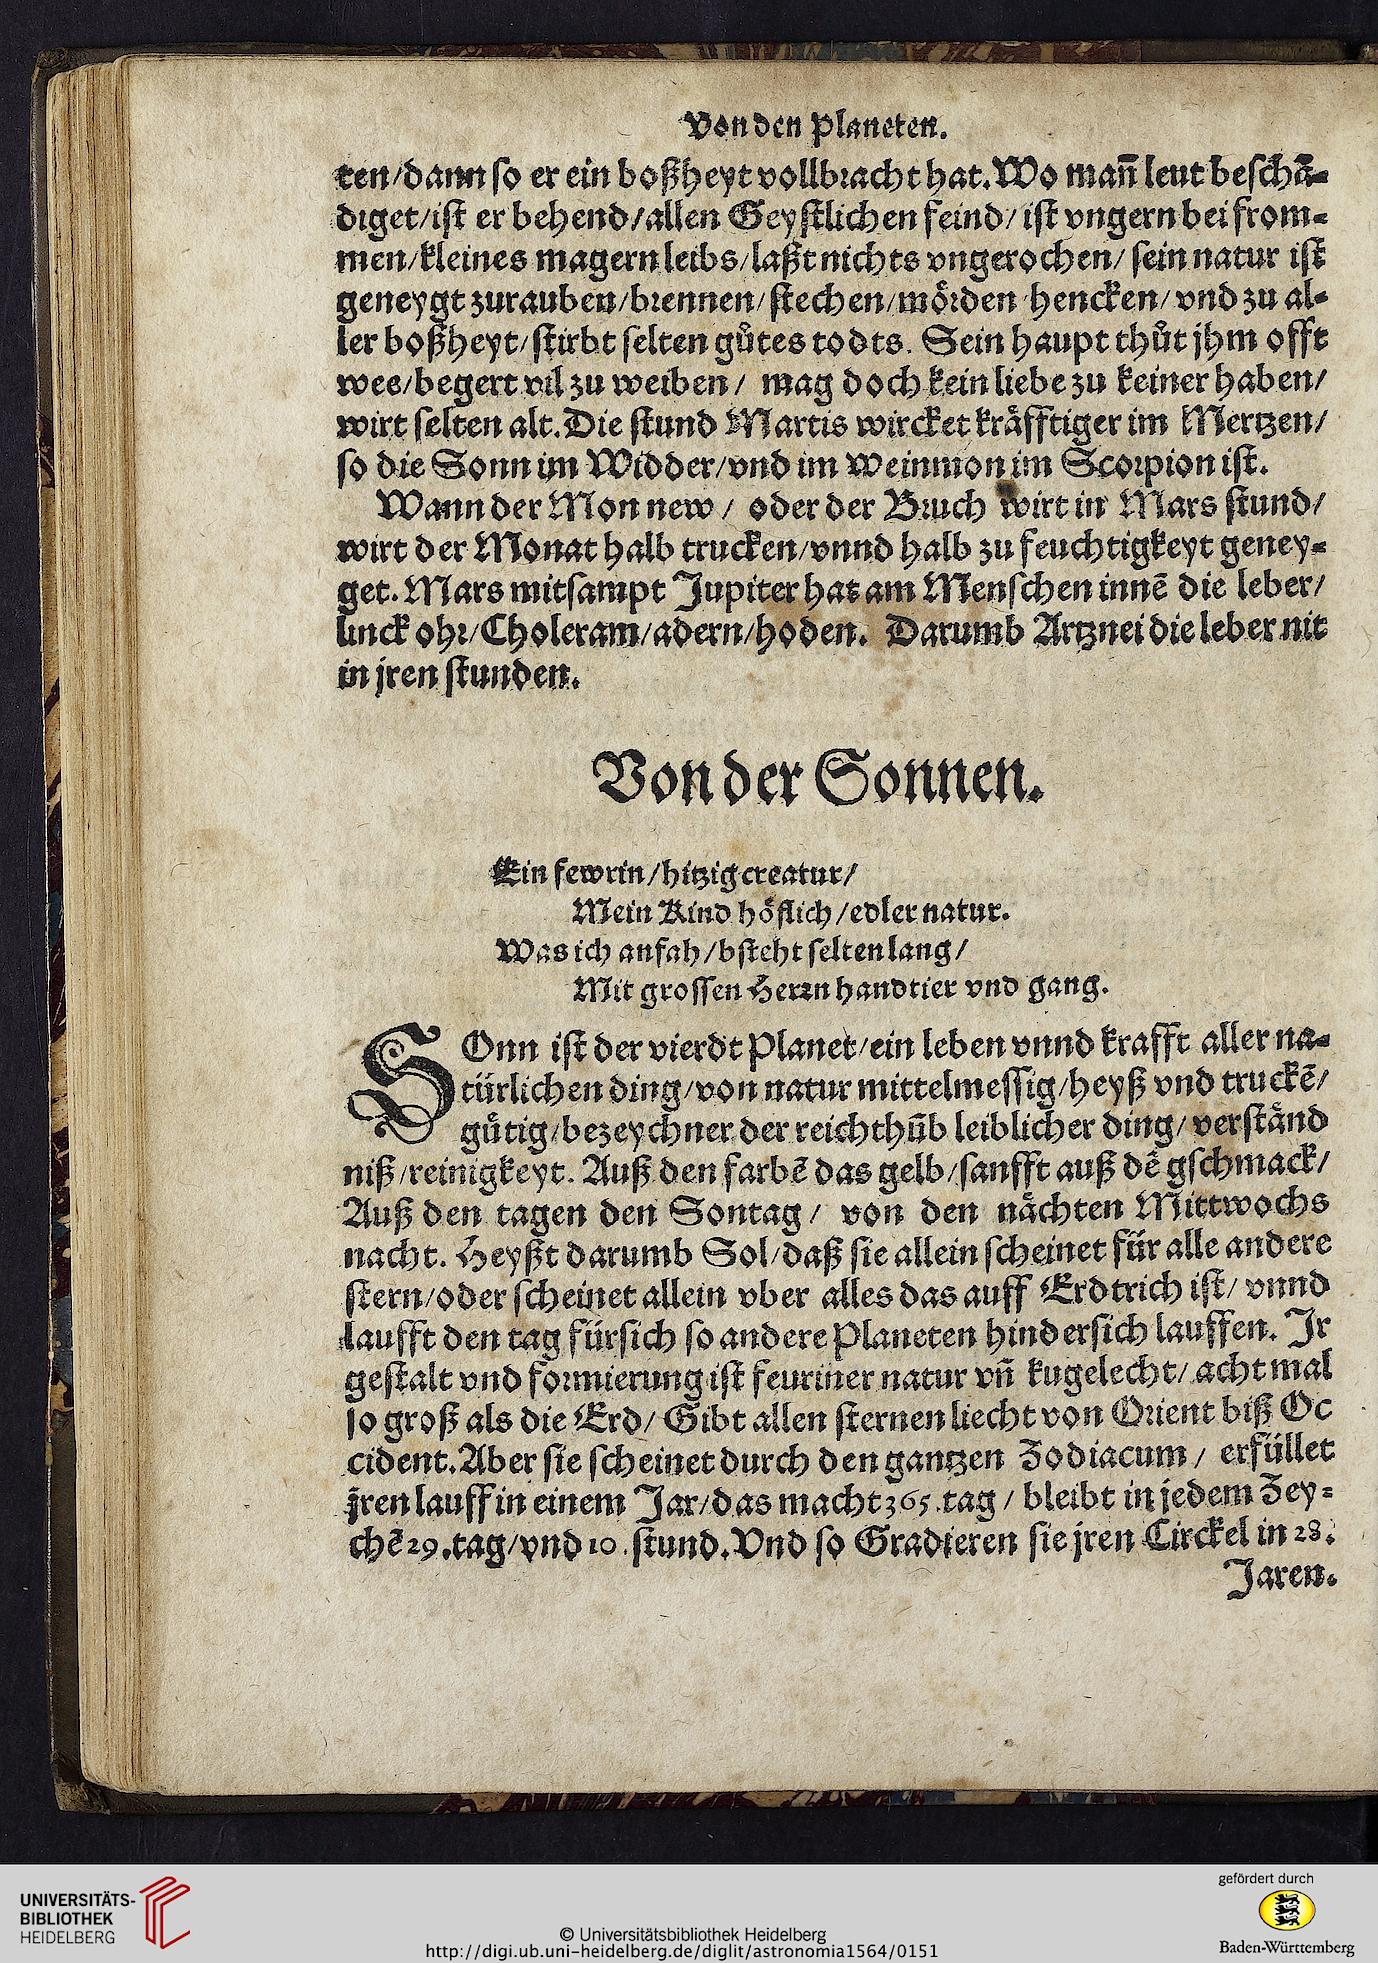 Von den Planeten.
ten/dann so er ein boßheyt vollbracht hat. Wo mañ leut beschä-
diget/ist er behend/allen Geystlichen feind/ ist vngern bei from-
men/kleines magern leibs/laßt nichts vngerochen/ sein natur ist
geneygt zurauben/brennen/stechen/mörden/hencken/ vnd zu al-
ler boßheyt/stirbt selten gůtes todts. Sein haupt thůt jhm offt
wee/begert vil zu weiben/ mag doch kein liebe zu keiner haben/
wirt selten alt. Die stund Martis wircket kräfftiger im Mertzen/
so die Sonn im Widder/vnd im Weinmon im Scorpion ist.
Wann der Mon new/ oder der Bruch wirt in Mars stund/
wirt der Monat halb trucken/vnnd halb zu feuchtigkeyt geney-
get. Mars mitsampt Jupiter hat am Menschen innē die leber/
linck ohr/Choleram/adern/hoden. Darumb Artznei die leber nit
in jren stunden.
Von der Sonnen.
Ein fewrin/hitzig creatur/
Mein Kind höflich/edler natur.
Was ich anfah/bsteht selten lang/
Mit grossen Herrn handtier vnd gang.
SOnn ist der vierdt Planet/ein leben vnnd krafft aller na-
türlichen ding/von natur mittelmessig/heyß vnd truckē/
gůtig/bezeychner der reichthūb leiblicher ding/ verständ
niß/reinigkeyt. Auß den farbē das gelb/sanfft auß dē gschmack/
Auß den tagen den Sontag/ von den nächten Mittwochs
nacht. Heyßt darumb Sol/daß sie allein scheinet für alle andere
stern/oder scheinet allein vber alles das auff Erdtrich ist/ vnnd
laufft den tag fürsich so andere Planeten hindersich lauffen. Jr
gestalt vnd formierung ist feuriner natur vñ kugelecht/ acht mal
so groß als die Erd/ Gibt allen sternen liecht von Orient biß Oc
cident. Aber sie scheinet durch den gantzen Zodiacum/ erfüllet
jren lauff in einem Jar/das macht 365. tag/ bleibt in jedem Zey-
chē 29. tag/vnd 10. stund. Vnd so Gradieren sie jren Circkel in 28.
Jaren.
UNIVERSITÄTS-
BIBLIOTHEK
HEIDELBERG
© Universitätsbibliothek Heidelberg
http://digi.ub.uni-heidelberg.de/diglit/astronomia1564/0151
gefördert durch
Baden-Württemberg